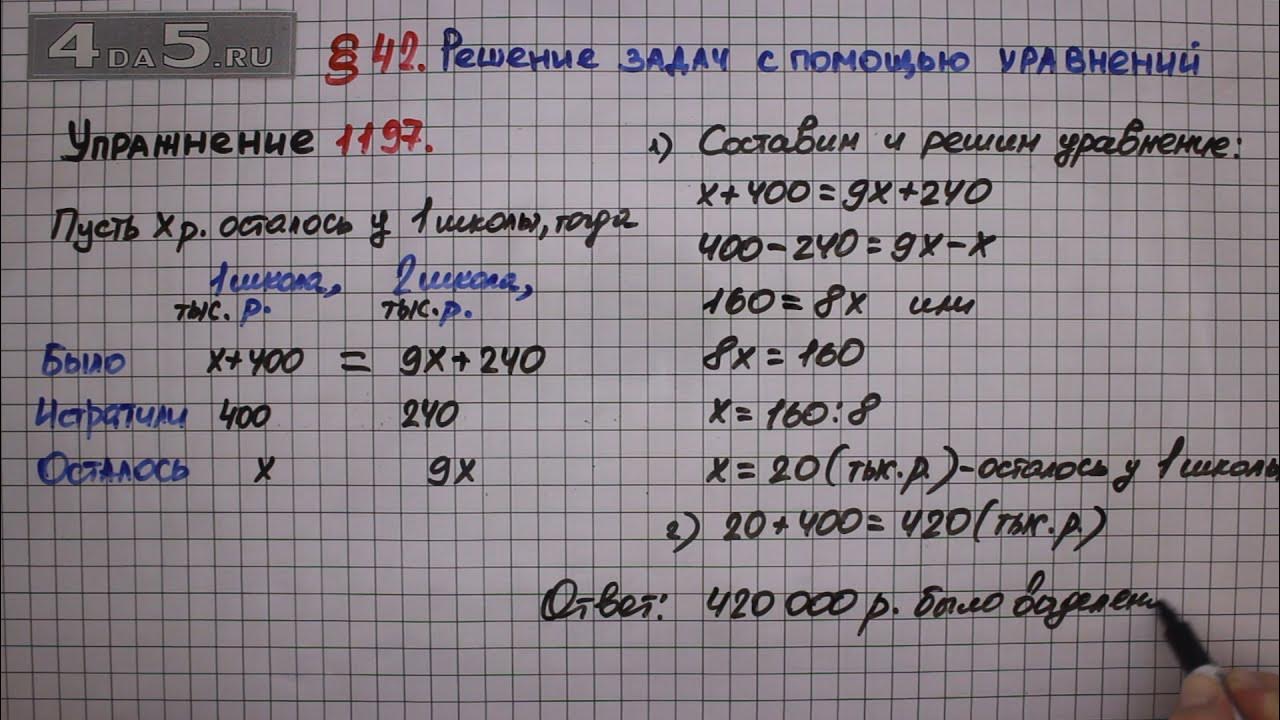 4DA5.RU
§ 42. Решение задач с помощью уравнений
Упражнение 1197.
Пусть x р. осталось у 1 школы, тогда
1 школа, 2 школа,
тыс. р. тыс. р.
Было x+400 = 9x+240
Истратили 400 240
Осталось x 9x
1) Составим и решим уравнение:
x+400=9x+240
400-240=9x-x
160=8x или
8x=160
x=160:8
x=20(тыс.р.)-осталось у 1 школы,
2) 20+400=420(тыс.р.)
Ответ: 420 000 р. было